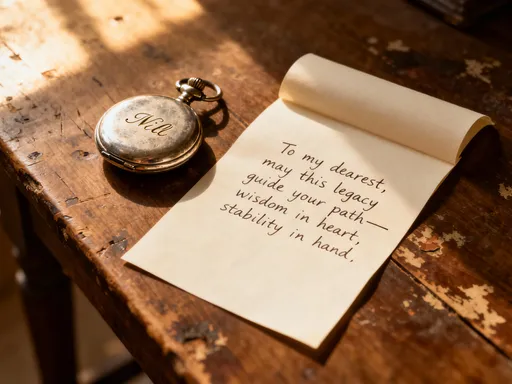 Nill
To my dearest,
may this legacy
guide your path—
wisdom in heart,
stability in hand.